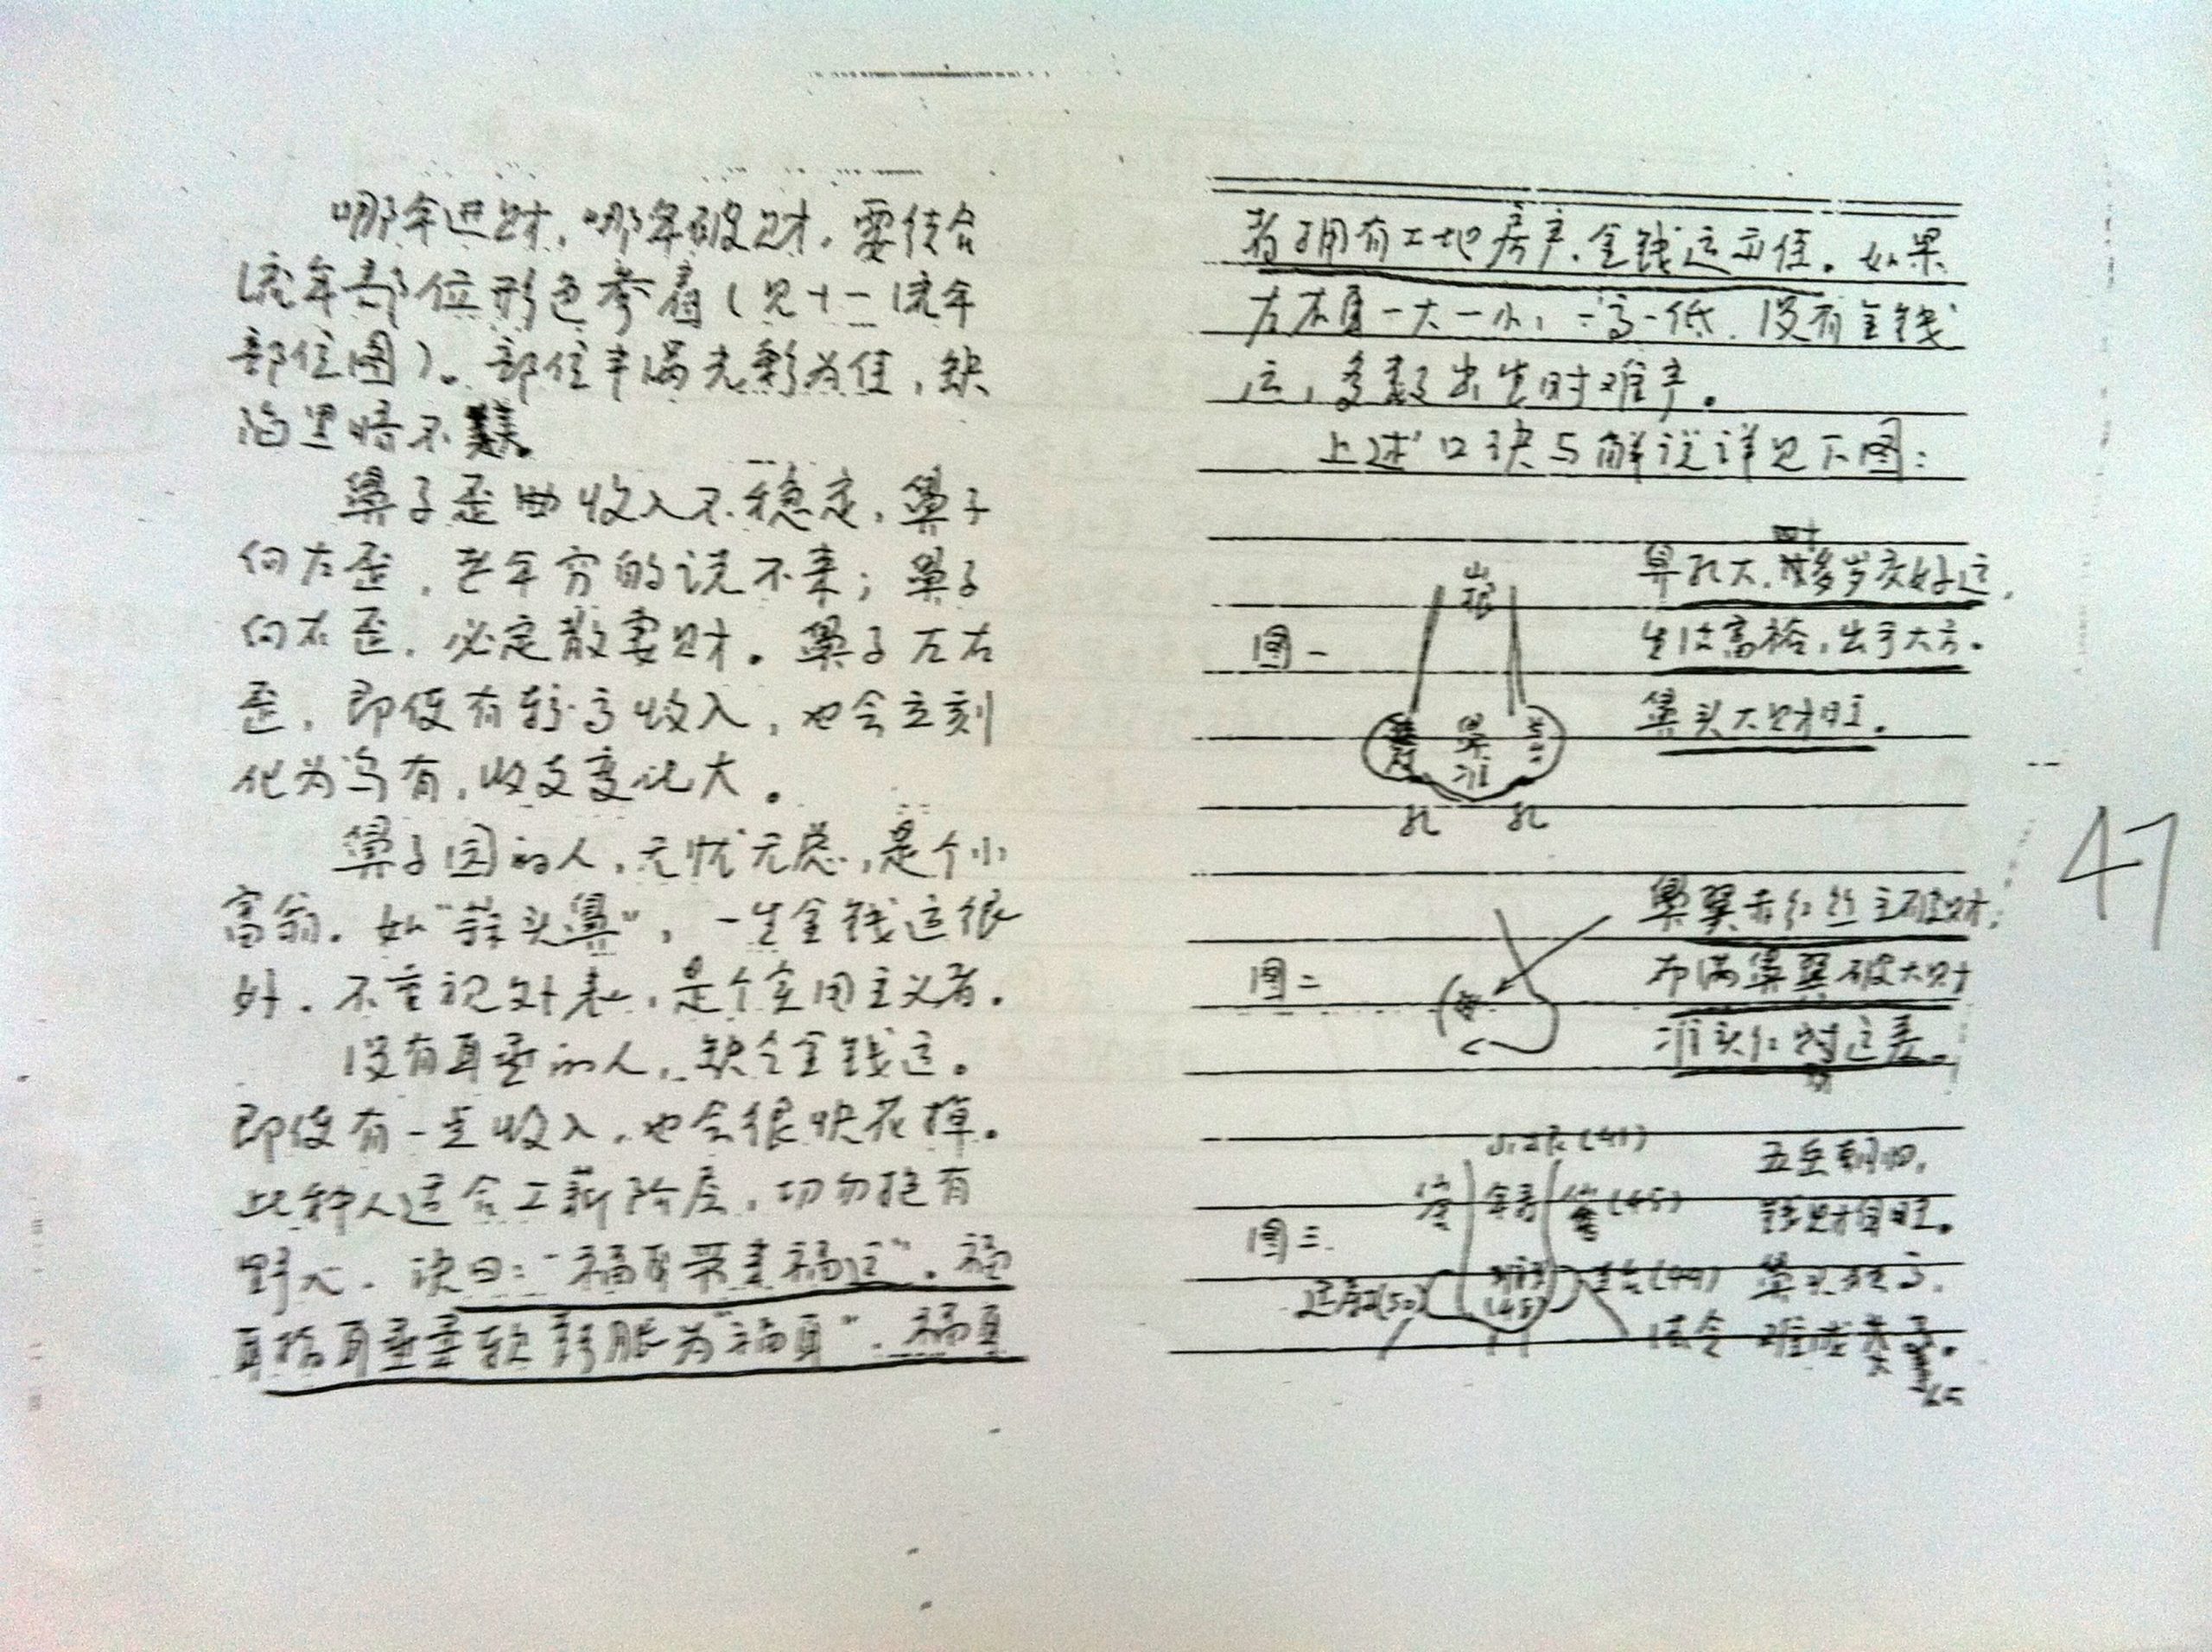 哪年进财，哪年破财，要结合
流年部位形色参看（见十一流年
部位图）。部位丰满光彩为佳，缺
陷黑暗不美。
鼻子歪曲收入不稳定，鼻子
向左歪，老年穷的说不来；鼻子
向右歪，必定散妻财。鼻子左右
歪，即使有较高收入，也会立刻
化为乌有，收支变化大。
鼻子圆的人，无忧无虑，是个小
富翁。如“蒜头鼻”，一生金钱运很
好，不重视外表，是个实用主义者。
没有耳垂的人，缺乏金钱运。
即使有一点收入，也会很快花掉。
此种人适合工薪阶层，切勿抱有
野心。诀曰：“福耳带来福运”。福
耳指耳垂垂软 胀为“福耳”。福耳
者拥有土地房产，金钱运亦佳。如果
左右耳一大一小，一高一低，没有金钱
运，多数出生时难产。
上述口诀与解说详见下图：
图一
山根
鼻准
孔 孔
鼻孔大，四十多岁交好运，
生活富裕，出手大方。
鼻头大财旺。
图二
鼻翼赤红丝主破财，
布满鼻翼破大财
准头红 财运差。
图三
山根(41)
年寿 (45)
准头
(48)
(49)
(50)
法令
五岳朝归，
钱财自旺。
鼻头 高，
难成大